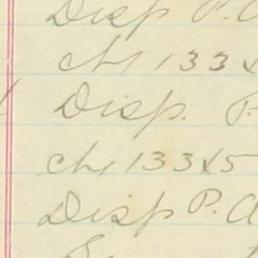 Disp P.
ch 133
Disp. P.
ch 133x5
Disp P. A